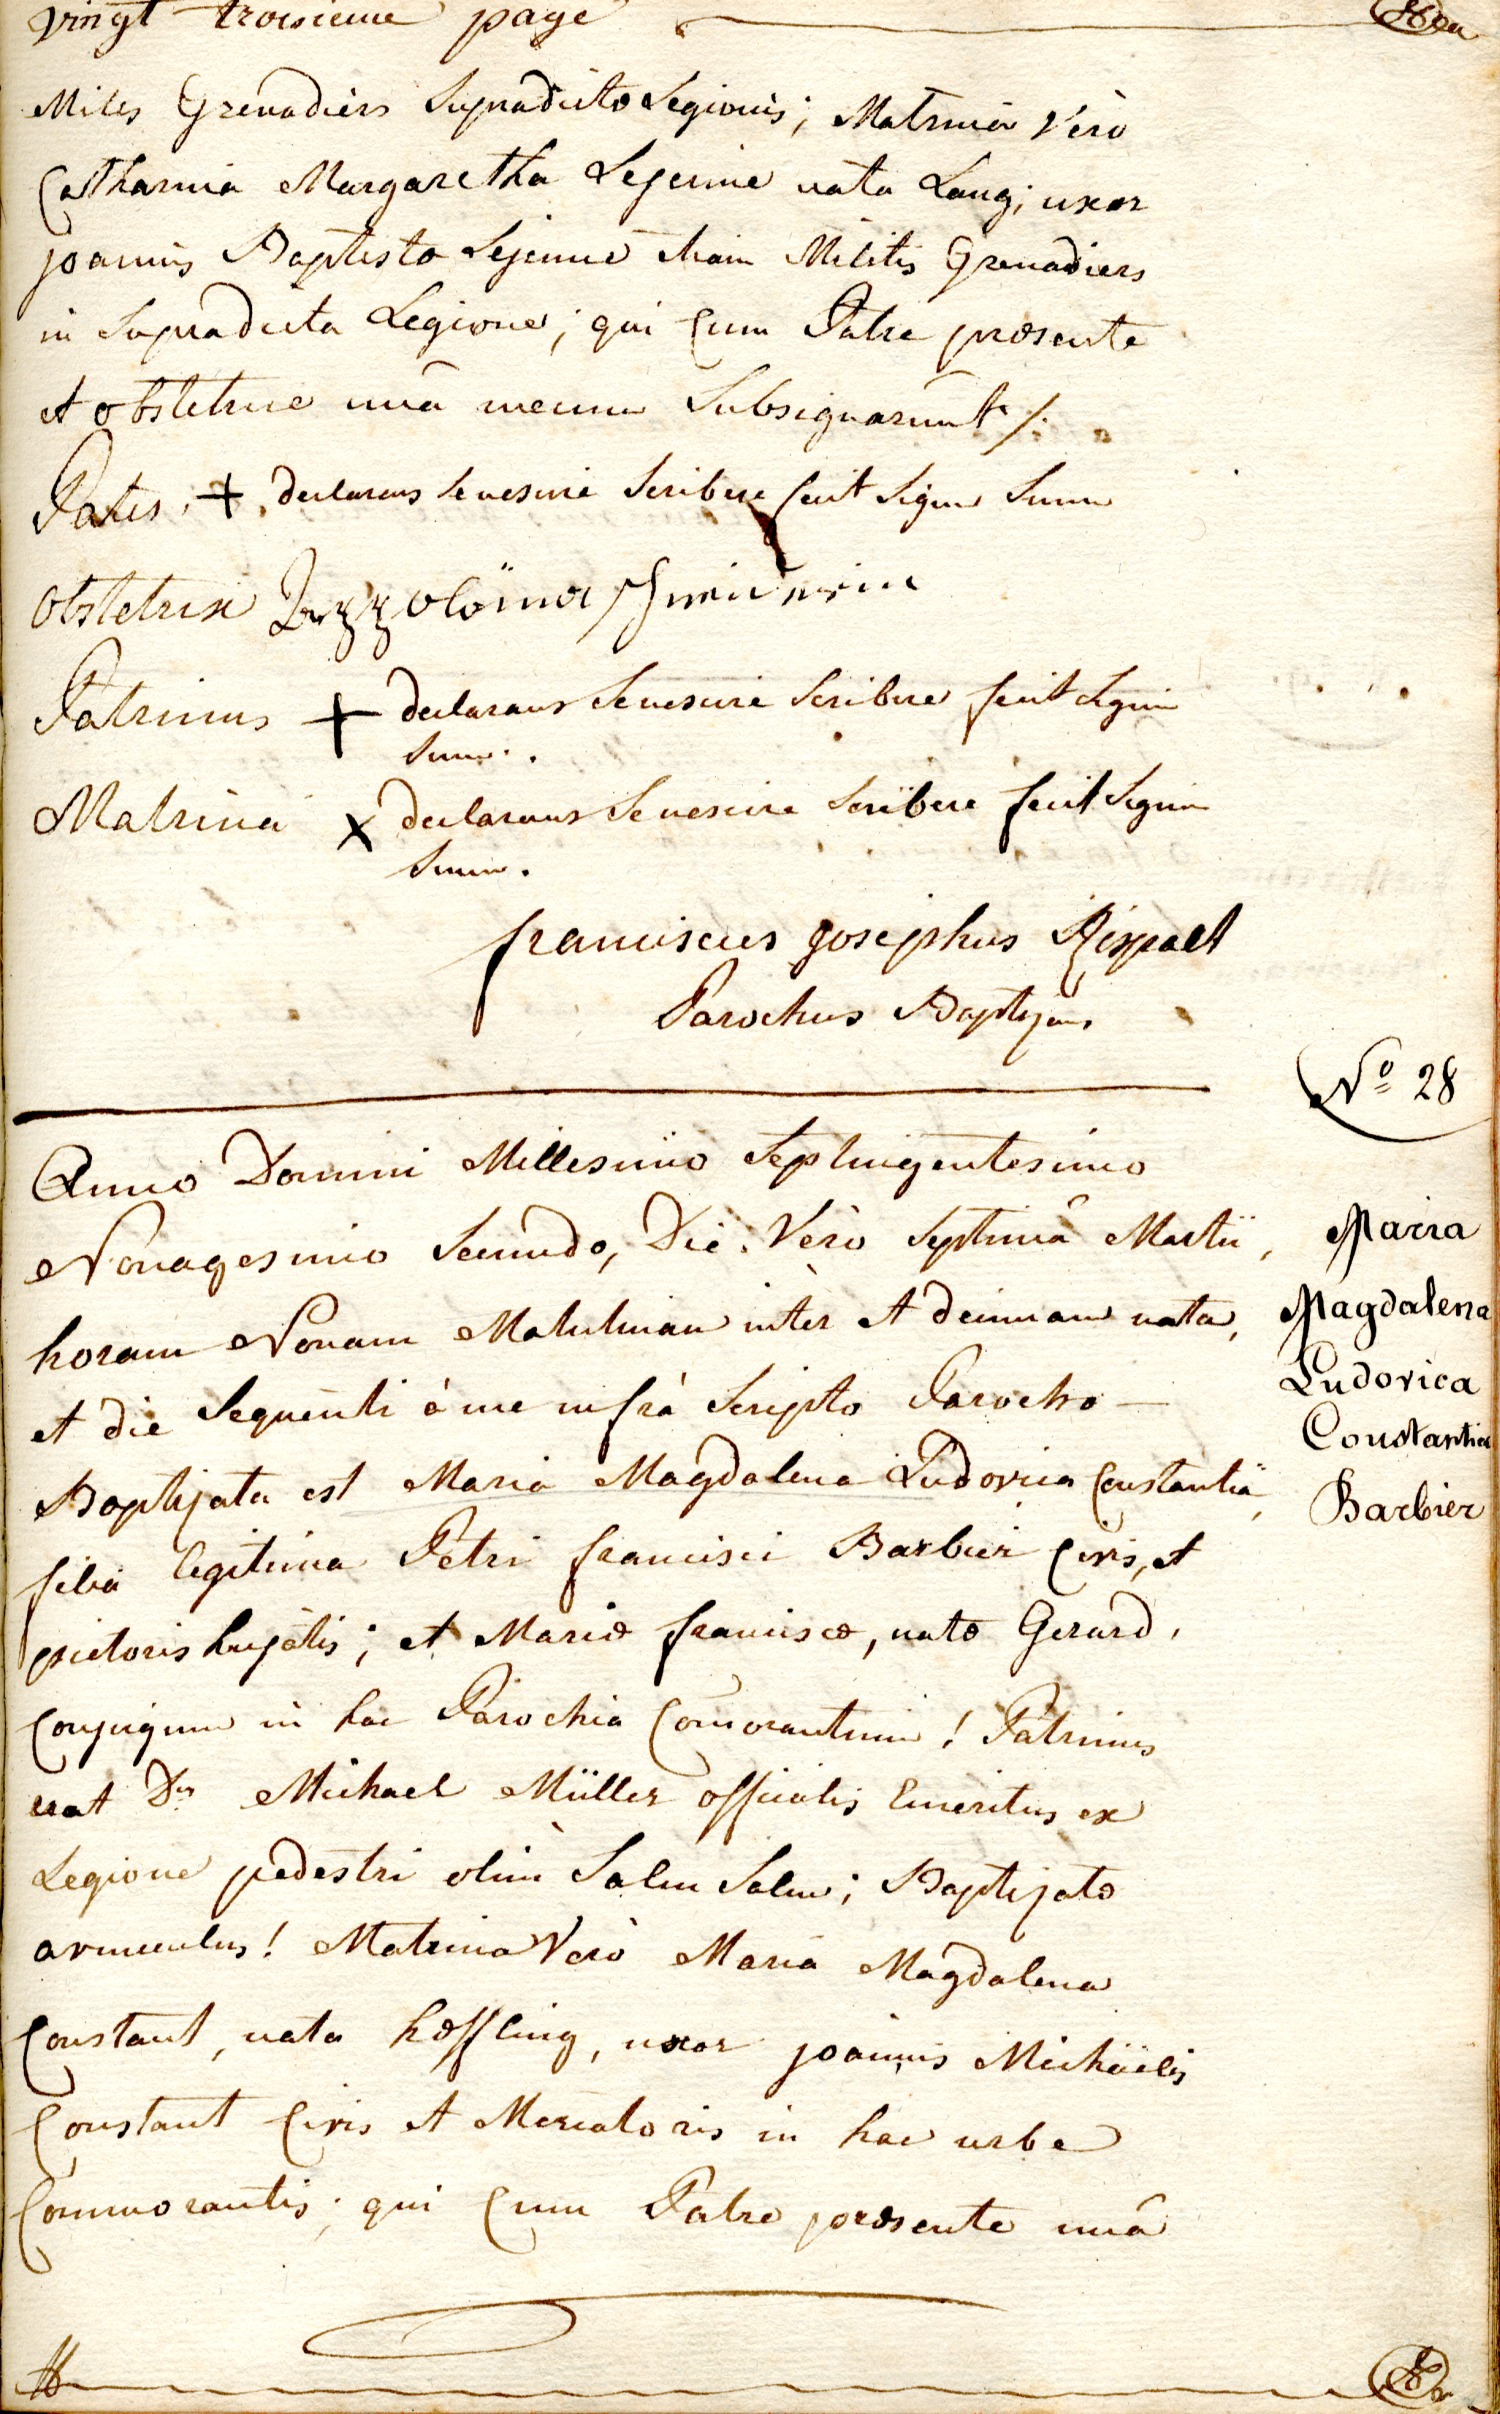 vingt troisieme page
Miles Grenadiers Supradictæ Legionis; Matrina Vero
Catharina Margaretha Lejeune nata Lang; uxor
joannis Baptistæ Lejeune etiam Militis Grenadiers
in Supradicta Legione; qui Cum Patre præsente
et obstetrice unâ mecum Subsignarunt /.
Pater + declarans Se nescire Scribere fecit Signum Suum
Obstetrix
Patrinus + declarans Se nescire Scribere fecit Signum
Suum.
Matrina x declarans Se nescire Scribere fecit Signum
Suum.
franciscus josephus Rispalt
Parochus Baptizans
No 28
Anno Domini Millesimo Septingentesimo
Nonagesimo Secundo, Die Vero Septimâ Martii,
horam Nonam Matutinam inter et decimam nata,
et die Sequenti à me infrà Scripto Parocho —
Baptizata est Maria Magdalena Ludovica Constantia,
filia legitima Petri francisci Barbier Civis, et
pictoris hujatis; et Mariæ franciscæ, natæ Gerard,
Conjugum in hac Parochia Comorantium! Patrinus
erat Dns Michael Müller officialis Emeritus ex
Legione pedestri olim Salm Salm; Baptizatæ
avunculus! Matrina Verò Maria Magdalena
Constant, nata hæffling, uxor joannis Michäelis
Constant Civis et Mercatoris in hac urbe
Commorantis; qui Cum Patre præsente unâ
Maria
Magdalena
Ludovica
Constantia
Barbier